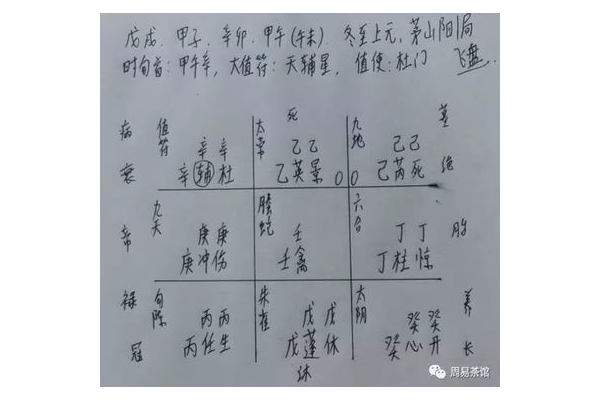 戊戌、甲子、辛卯、甲午(午未)、冬至上元,茅山阳1局
时旬首:甲午辛,大值符:天辅星,值使:杜门 飞盘
死
病 值符 太常 九地 墓
辛 辛 乙 乙 己 己
衰 辛 辅 杜 乙 英 景 0 0 己 芮 死 绝
九天 螣蛇 六合
帝 庚 庚 壬 丁 丁 胎
庚 冲 伤 壬 禽 丁 柱 惊
禄 勾陈 朱雀 太阴 养
丙 丙 戊 戊 癸 癸
冠 丙 任 生 戊 蓬 休 癸 心 开 长
沐
周易茶馆